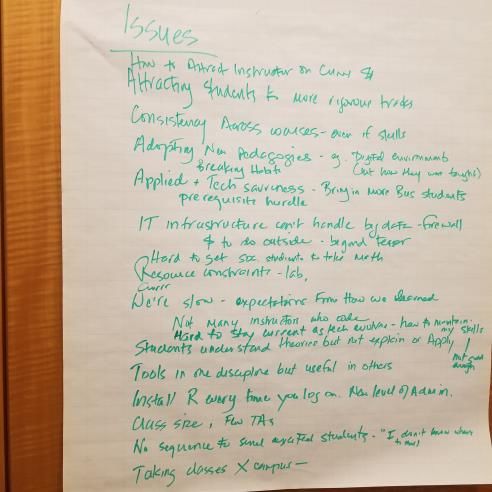 Issues
How to Attract Instructor on Cuny $
Attracting Students to more rigorous tracks
Consistency Across courses - even if skills
Adopting New Pedagogies - eg. Digital environments
Breaking Habits (not how they was taught)
Applied + Tech savviness - Bring in More Bus students
prerequisite hurdle
IT infrastructure can't handle big data - firewall
$ to do outside - beyond
Hard to get soc. students to take math
Resource constraints - lab,
We're slow - expectations From How we learned
Not Many instructors who code
Hard to stay current as tech evolves - how to maintain my skills
Students understand theories but not explain or Apply
not good enough
Tools in one discipline but useful in others
Install R every time you log on. New level of Admin.
Class size, Few TAs
No sequence to send students - "I don't know where to
Taking classes X campus -